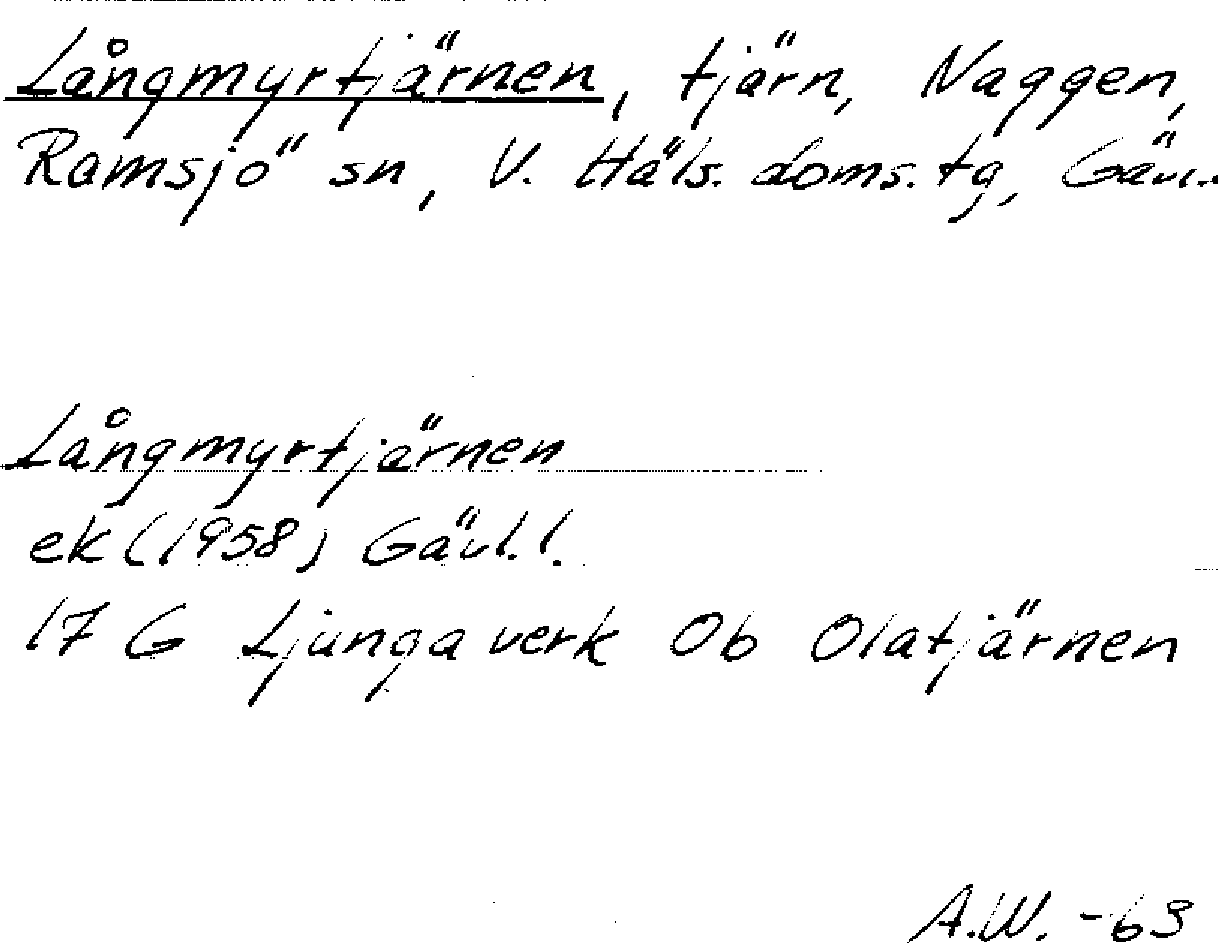 Långmyrtjärnen, tjärn, Naggen,
Ramsjö sn, V. Häls. doms. tg, Gävl.
Långmyrtjärnen
ek (1958) Gävl. l.
17 G Ljungaverk Ob Olatjärnen
A.W. -63